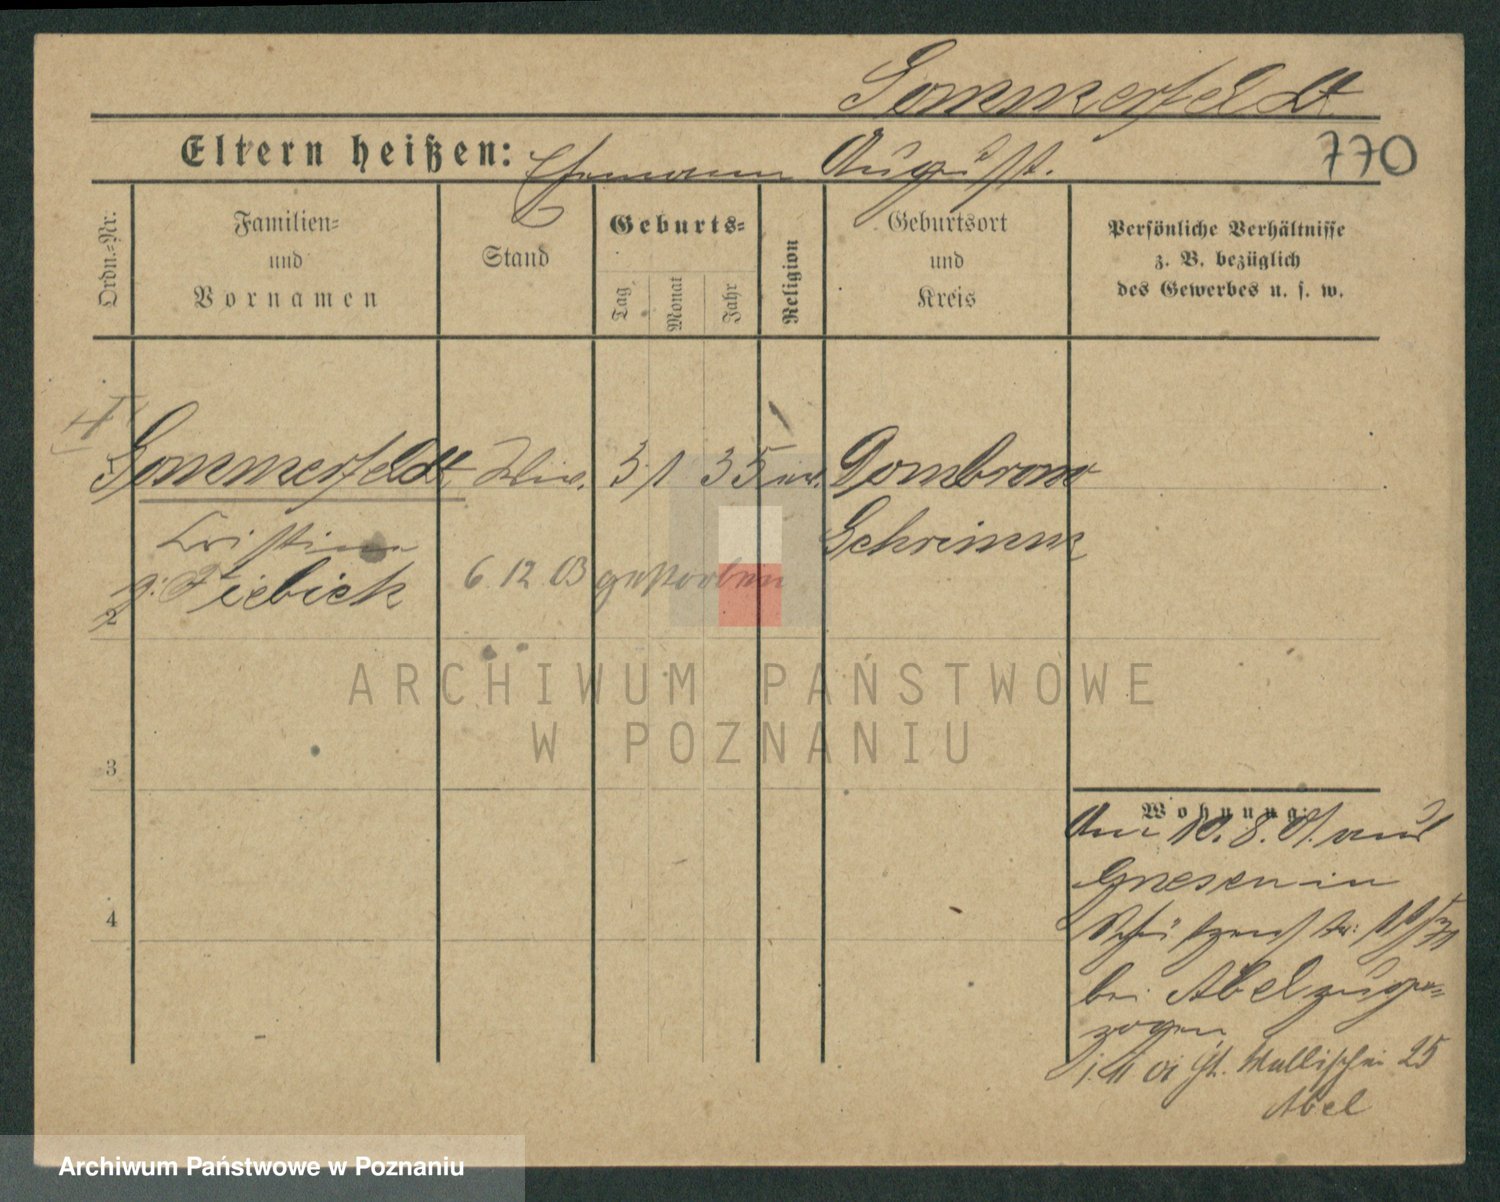 Sommerfeldt
Eltern heißen: Ehemann August.
770
Ordn.-Nr.
Familien-
und
Vornamen
Stand
Geburts-
Tag
Monat
Jahr
Religion
Geburtsort
und
Kreis
Persönliche Verhältnisse
z. B. bezüglich
des Gewerbes u. s. w.
1 Sommerfeldt Wiw. 3 1 35 ev. Dombrowo
Schrimm
g. Fiebick 6. 12. 03 gestorben
2
3
4
ARCHIWUM PAŃSTWOWE
W POZNANIU
Wohnung:
Am 10. 8. 01. aus
Gnesen in
Schützenstr.
bei Abel zuge-
zogen
Wallischei 25
Abel
Archiwum Państwowe w Poznaniu